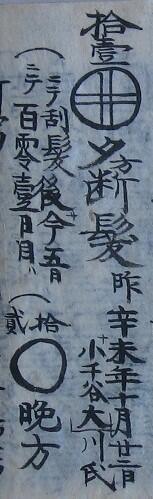 拾壹
夕方断髪 昨辛未年十月廿一日
小千谷大川氏
(ニテ刮髪後今十五日
ニテ百零壹日目)
(拾貳
晩方